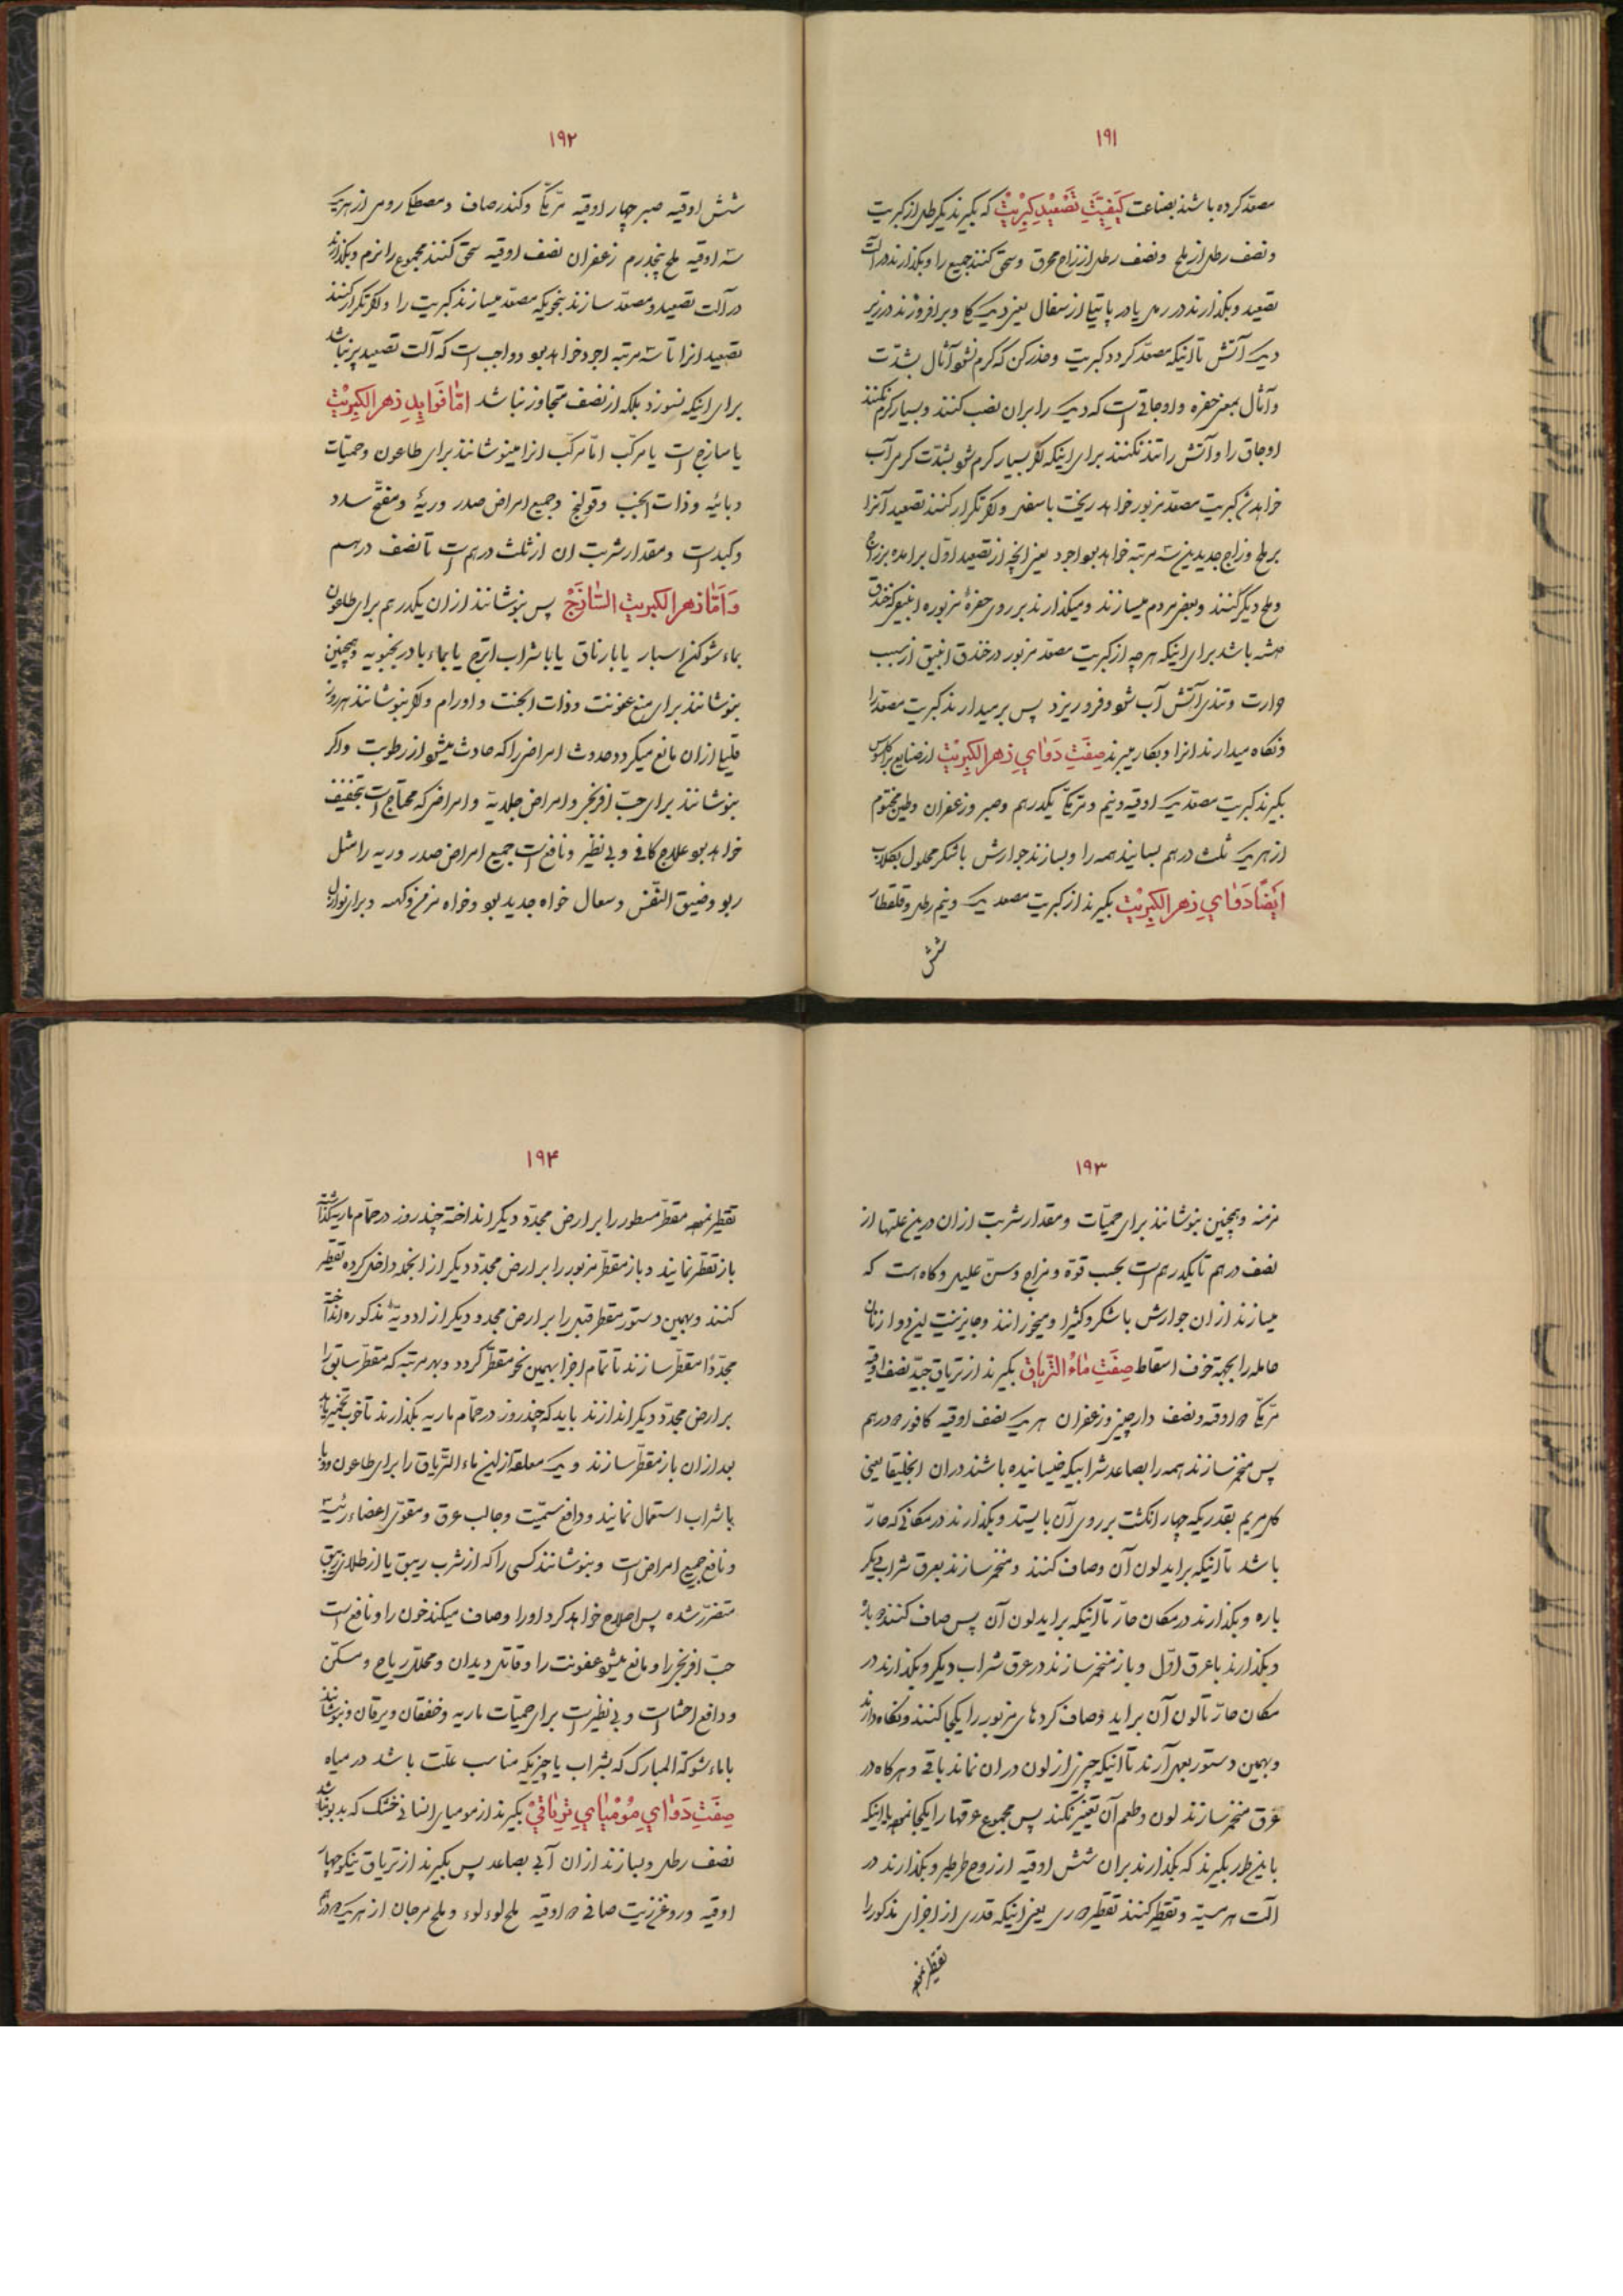 ۱۹۱
مصعّد کرده باشند بصناعت کَیفیَّتِ تَصْعِیْدِ کِبْرِیْت که بگیرند یکرطل از کبریت
و نصف رطل از ملح و نصف رطل از زاج محرق و سحق کنند جمیع را و بگذارند در آلت
تصعید و بگذارند در رمل یا در پاتیل از سفال یعنی دیک کا و برافروزند در زیر
دیک آتش تا اینکه مصعّد کردد کبریت و حذر کن که کرم نشو آثال بشدّت
و آثال بمعنی حفره و اوجاقی است که دیک را بران نصب کنند و بسیار کرم نکنند
اوجاق را و آتش را تند نکنند برای اینکه اگر بسیار کرم شو بشدّت کرمی آب
خواهد شد کبریت مصعّد مزبور خواهد ریخت باسفل و اگر تکرار کنند تصعید آنرا
بر ملح و زاج جدیدین سه مرتبه خواهد بو اجود یعنی انچه از تصعید اوّل برامده بر زاج
و ملح دیگر کنند و بعضی مردم میسازند و میگذارند بر روی حفرهٔ مزبوره انبیقی که خندق
داشته باشد برای اینکه هر چه از کبریت مصعّد مزبور در خندق انبیق از سبب
حرارت و تندی آتش آب شو و فرو ریزد پس برمیدارند کبریت مصعّد را
و نکاه میدارند انرا و بکار میبرند صِفَتِ دَوٰایِ زهر الکِبِریْت از صنایع براکلسوس
بگیرند کبریت مصعّد یک اوقیه و نیم و مرّ مکّی یکدرهم و صبر و زعفران و طین مختوم
از هریک ثلث درهم بسایند همه را و بسازند جوارش با شکر محلول بکلاب
اَیضًا دَوٰایِ زهر الکِبِریْت بگیرند از کبریت مصعد یک و نیم رطل و قلقطار
شش
۱۹۲
شش اوقیه صبر چهار اوقیه مرّ مکّی و کندر صاف و مصطکی رومی از هریک
سه اوقیه ملح پنجدرم زعفران نصف اوقیه سحق کنند مجموع را نرم و بگذارند
در آلت تصعید و مصعّد سازند بنحویکه مصعّد میسازند کبریت را و اگر تکرار کنند
تصعید انرا تا سه مرتبه اجود خواهد بو و واجب است که آلت تصعید پر نباشد
برای اینکه نسوزد بلکه از نصف متجاوز نباشد امّا فَوایِدِ زهر الکِبِریْت
یا ساذج است یا مرکّب امّا مرکّب انرا مینوشانند برای طاعون و حمیّات
وبائیه و ذات الجنب و قولنج و جمیع امراض صدر و ریهٔ و مفتّح سدد
و کبد است و مقدار شربت ان از ثلث درهم است تا نصف درهم
وَاَمّا زهر الکبریت السّاذَجْ پس بنوشانند از ان یکدرهم برای طاعون
بماء شوکة اسبار یا بارتاق یا با شراب اترج یا بماء بادرنجبویه و همچنین
بنوشانند برای منع عفونت و ذات الجنت و اورام و اگر بنوشانند هر روز
قلیلی از ان مانع میکردد حدوث امراض را که حادث میشو از رطوبت و اگر
بنوشانند برای حبّ افرنجی و امراض جلدیّة و امراضی که محتاج است بتجفیف
خواهد بو علاج کافی و بی نظیر و نافع است جمیع امراض صدر و ریه را مثل
ربو و ضیق النّفس و سعال خواه جدید بو و خواه مزمن و کهنه و برای نوازل
۱۹۳
مزمنه و همچنین بنوشانند برای حمیّات و مقدار شربت از ان درین علتها از
نصف درهم تا یکدرهم است بحسب قوّة و مزاج و سنّ علیل و کاه است که
میسازند از ان جوارش با شکر و کثیرا و میخورانند و جایز نیست این دوا زنان
حامله را بجهة خوف اسقاط صِفَتِ مٰاءُ التّریاق بگیرند از تریاق جیّد نصف اوقیه
مرّ مکّی ۵ اوقیه و نصف دارچینی و زعفران هریک نصف اوقیه کافور ۵ درهم
پس مخمّر سازند همه را بصاعد شرابیکه خیسانیده باشند در ان انجلیقا یعنی
کل مریم بقدریکه چهار انکشت بر روی آن بایستد و بگذارند در مکانی که حارّ
باشد تا اینکه براید لون آن و صاف کنند و مخمّر سازند بعرق شراب دیگر
باره و بگذارند در مکان حارّ تا اینکه براید لون آن پس صاف کنند
و بگذارند با عرق اوّل و باز مخمّر سازند در عرق شراب دیگر و بگذارند در
مکان حارّ تا لون آن براید و صاف کردهای مزبور را یکجا کنند و نکاه دارند
و بهمین دستور بعمل آرند تا اینکه چیزی از لون در ان نماند باقی و هر کاه در
عرق مخمّر سازند لون و طعم آن تغییر نکند پس مجموع عرقها را یکجا نموده با اینکه
باینطور بگیرند که بگذارند بران شش اوقیه از روح طرطیر و بگذارند در
آلت هرمسیّة و تقطیر کنند یعنی اینکه قدری از اجزای مذکور را
تقطیر نموده
۱۹۴
تقطیر نموده مقطّر مسطور را بر ارض مجدّد دیگر انداخته چند روز در حمّام ماریه گذاشته
باز تقطیر نمایند و باز مقطّر مزبور را بر ارض مجدّد دیگر از انجمله داخل کرده تقطیر
کنند و بهمین دستور مقطر قبل را بر ارض مجدد دیگر از ادویهٔ مذکوره انداخته
مجدّدًا مقطّر سازند تا تمام اجزا بهمین نحو مقطّر کردد و بهر مرتبه که مقطّر سابق را
بر ارض مجدّد دیگر اندازند باید که چند روز در حمّام ماریه بگذارند تا خوب تخمیر یابد
بعد از ان باز مقطّر سازند و یک معلقه از این ماء التّریاق را برای طاعون و وبا
با شراب استعمال نمایند و دافع سمّیت و جالب عرق و مقوّی اعضاء رئیسه
و نافع جمیع امراض است و بنوشانند کسی را که از شرب زیبق یا از طلای زیبق
متضرّر شده پس اصلاح خواهد کرد او را و صاف میکند خون را و نافع است
حبّ افرنجی را و مانع میشو عفونت را و قاتل دیدان و محلّل ریاح و مسکّن
و دافع احشاء است و بی نظیر است برای حمیّات ماریه و خفقان و یرقان و بنوشانند
باماء شوکة المبارک که بشراب یا چیزیکه مناسب علّت باشد در میاه
صِفَتِ دَوٰایِ مُوْمیٰایِ تِریٰاقیْ بگیرند از مومیای انسانی خشک که بدبو نباشد
نصف رطل و بسازند از ان آبی بصاعد پس بگیرند از تریاق نیکو چهار
اوقیه و روغن زیت صافی ۵ اوقیه ملح لوءلوء و ملح مرجان از هریک ۵ درهم